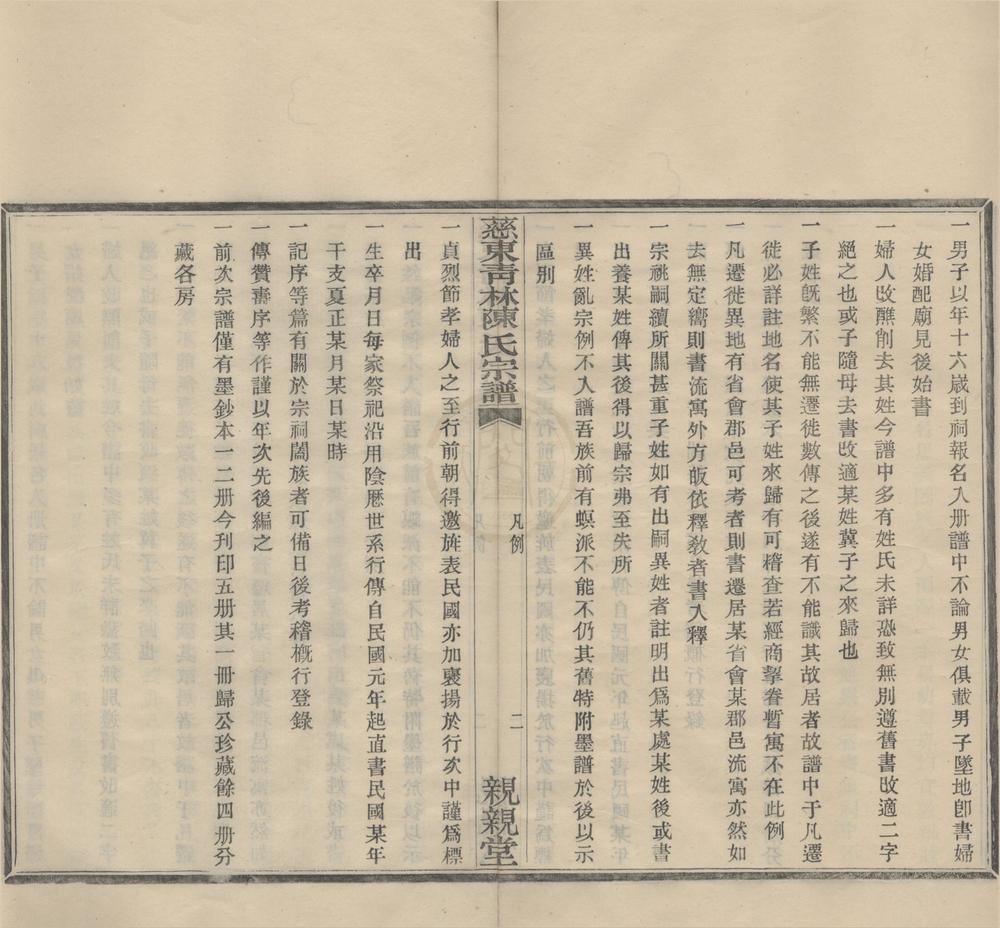 一男子以年十六歲到祠報名入册譜中不論男女俱載男子墜地卽書婦
女婚配廟見後始書
一婦人改醮削去其姓今譜中多有姓氏未詳恐致無別遵舊書改適二字
絕之也或子隨母去書改適某姓冀子之來歸也
一子姓旣繁不能無遷徙數傳之後遂有不能識其故居者故譜中于凡遷
徙必詳註地名使其子姓來歸有可稽查若經商挈眷暫寓不在此例
一凡遷徙異地有省會郡邑可考者則書遷居某省會某郡邑流寓亦然如
去無定嚮則書流寓外方皈依釋敎者書入釋
一宗祧嗣續所關甚重子姓如有出嗣異姓者註明出爲某處某姓後或書
出養某姓俾其後得以歸宗弗至失所
一異姓亂宗例不入譜吾族前有螟派不能不仍其舊特附墨譜於後以示
區別
慈東靑林陳氏宗譜
凡例
二
親親堂
一貞烈節孝婦人之至行前朝得邀旌表民國亦加褒揚於行次中謹爲標
出
一生卒月日每家祭祀沿用陰厯世系行傳自民國元年起直書民國某年
干支夏正某月某日某時
一記序等篇有關於宗祠闔族者可備日後考稽槪行登錄
一傳贊壽序等作謹以年次先後編之
一前次宗譜僅有墨鈔本一二册今刊印五册其一册歸公珍藏餘四册分
藏各房